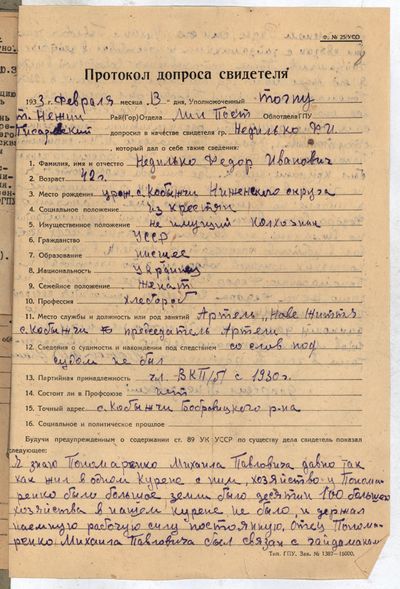 ф. № 25/УСО
Протокол допроса свидетеля
1933 г. Февраля месяца 13 дня, Уполномоченный
г. Нежин Рай(Гор)Отдела Лин Пост ОблотделаГПУ
Писаревский допросил в качестве свидетеля гр. Недилько Ф.И.
, который дал о себе такие сведения:
1. Фамилия, имя и отчество Недилько Федор Иванович
2. Возраст 42 г.
3. Место рождения урож. с. Кобыжчи Ниженского округа
4. Социальное положение из крестян
5. Имущественное положение не имущий колхозник
6. Гражданство УССР
7. Образование нисшее
8. Национальность Украинец
9. Семейное положение женат
10. Профессия хлебороб
11. Место службы и должность или род занятий Артель „Нове Життя
с. Кобыжчи председатель Артели
12. Сведения о судимости и нахождении под следствием со слов под
судом не был
13. Партийная принадлежность чл. ВКП/б/ с 1930 г.
14. Состоит ли в Профсоюзе нет
15. Точный адрес с. Кобыжчи Бобровицкого р-на
16. Социальное и политическое прошлое
Будучи предупрежденным о содержании ст. 89 УК УССР по существу дела свидетель показал
следующее:
Я знаю Пономаренко Михаила Павловича давно так
как жил в одном курене с ним, хозяйство у Понома-
ренко было большое земли было десятин 100 большого
хозяйства в нашем курене не было, и держал
наемную рабочую силу постоянную, отец Понома-
ренко Михаила Павловича был связан с гайдамаками
Тип. ГПУ. Зак. № 1387—15000.